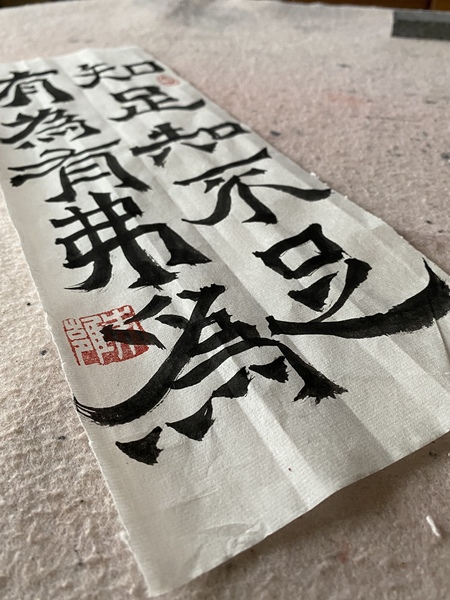 知足知不足
有為有弗為